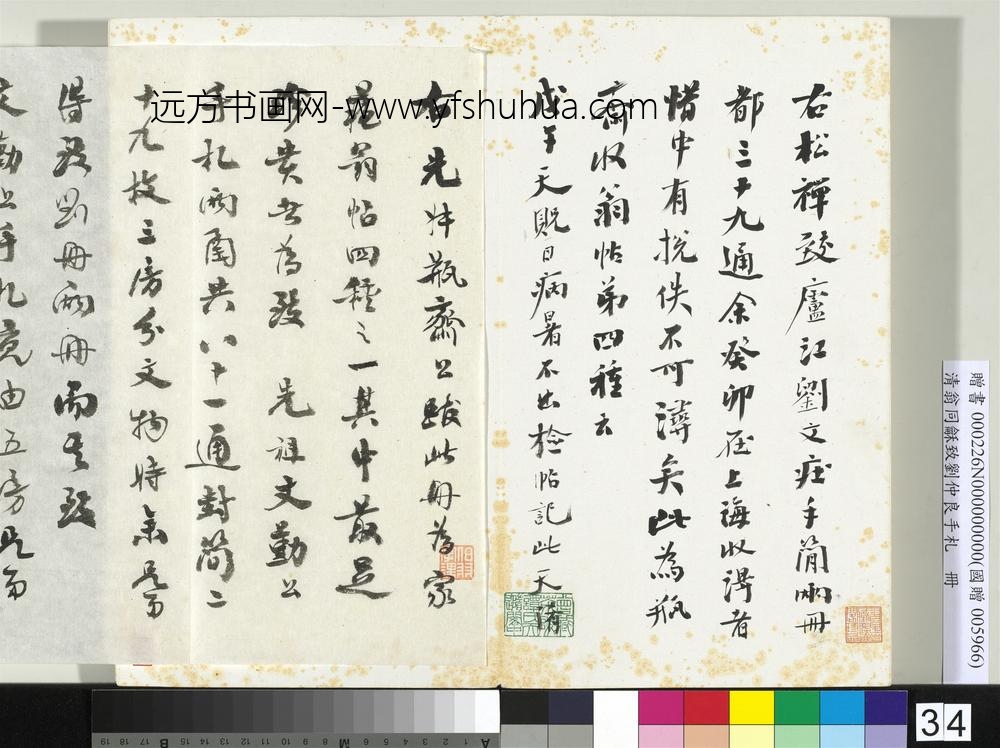 右松禪致廬江劉文莊手簡兩冊
都三十九通余癸卯在上海收得者
惜中有挩佚不可得矣此為瓶
齋收翁帖弟四種云
戊午天貺日病暑不出檢帖記此天
右先叔瓶齋公跋此冊為家
藏翁帖四種之一其中最足
珍貴者為致 先祖文勤公
手札兩函共八十一通對簡二
十九枚三房分文物時余
得致劉冊兩冊而其致
文勤公手札竟由五房
远方书画网-www.yfshuhua.com
贈書 000226N000000000(國贈 005966)
清翁同龢致劉仲良手札 冊
34
19 18 17 16 15 B
M
2 1 A